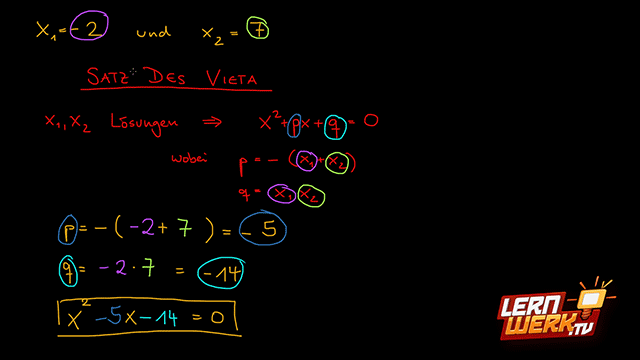 x₁ = -2 und x₂ = 7
SATZ DES VIETA
x₁, x₂ Lösungen ⇒ x² + px + q = 0
wobei p = - (x₁ + x₂)
q = x₁ x₂
p = - ( -2 + 7 ) = - 5
q = -2 · 7 = -14
x² -5x -14 = 0
LERN
WERK.TV